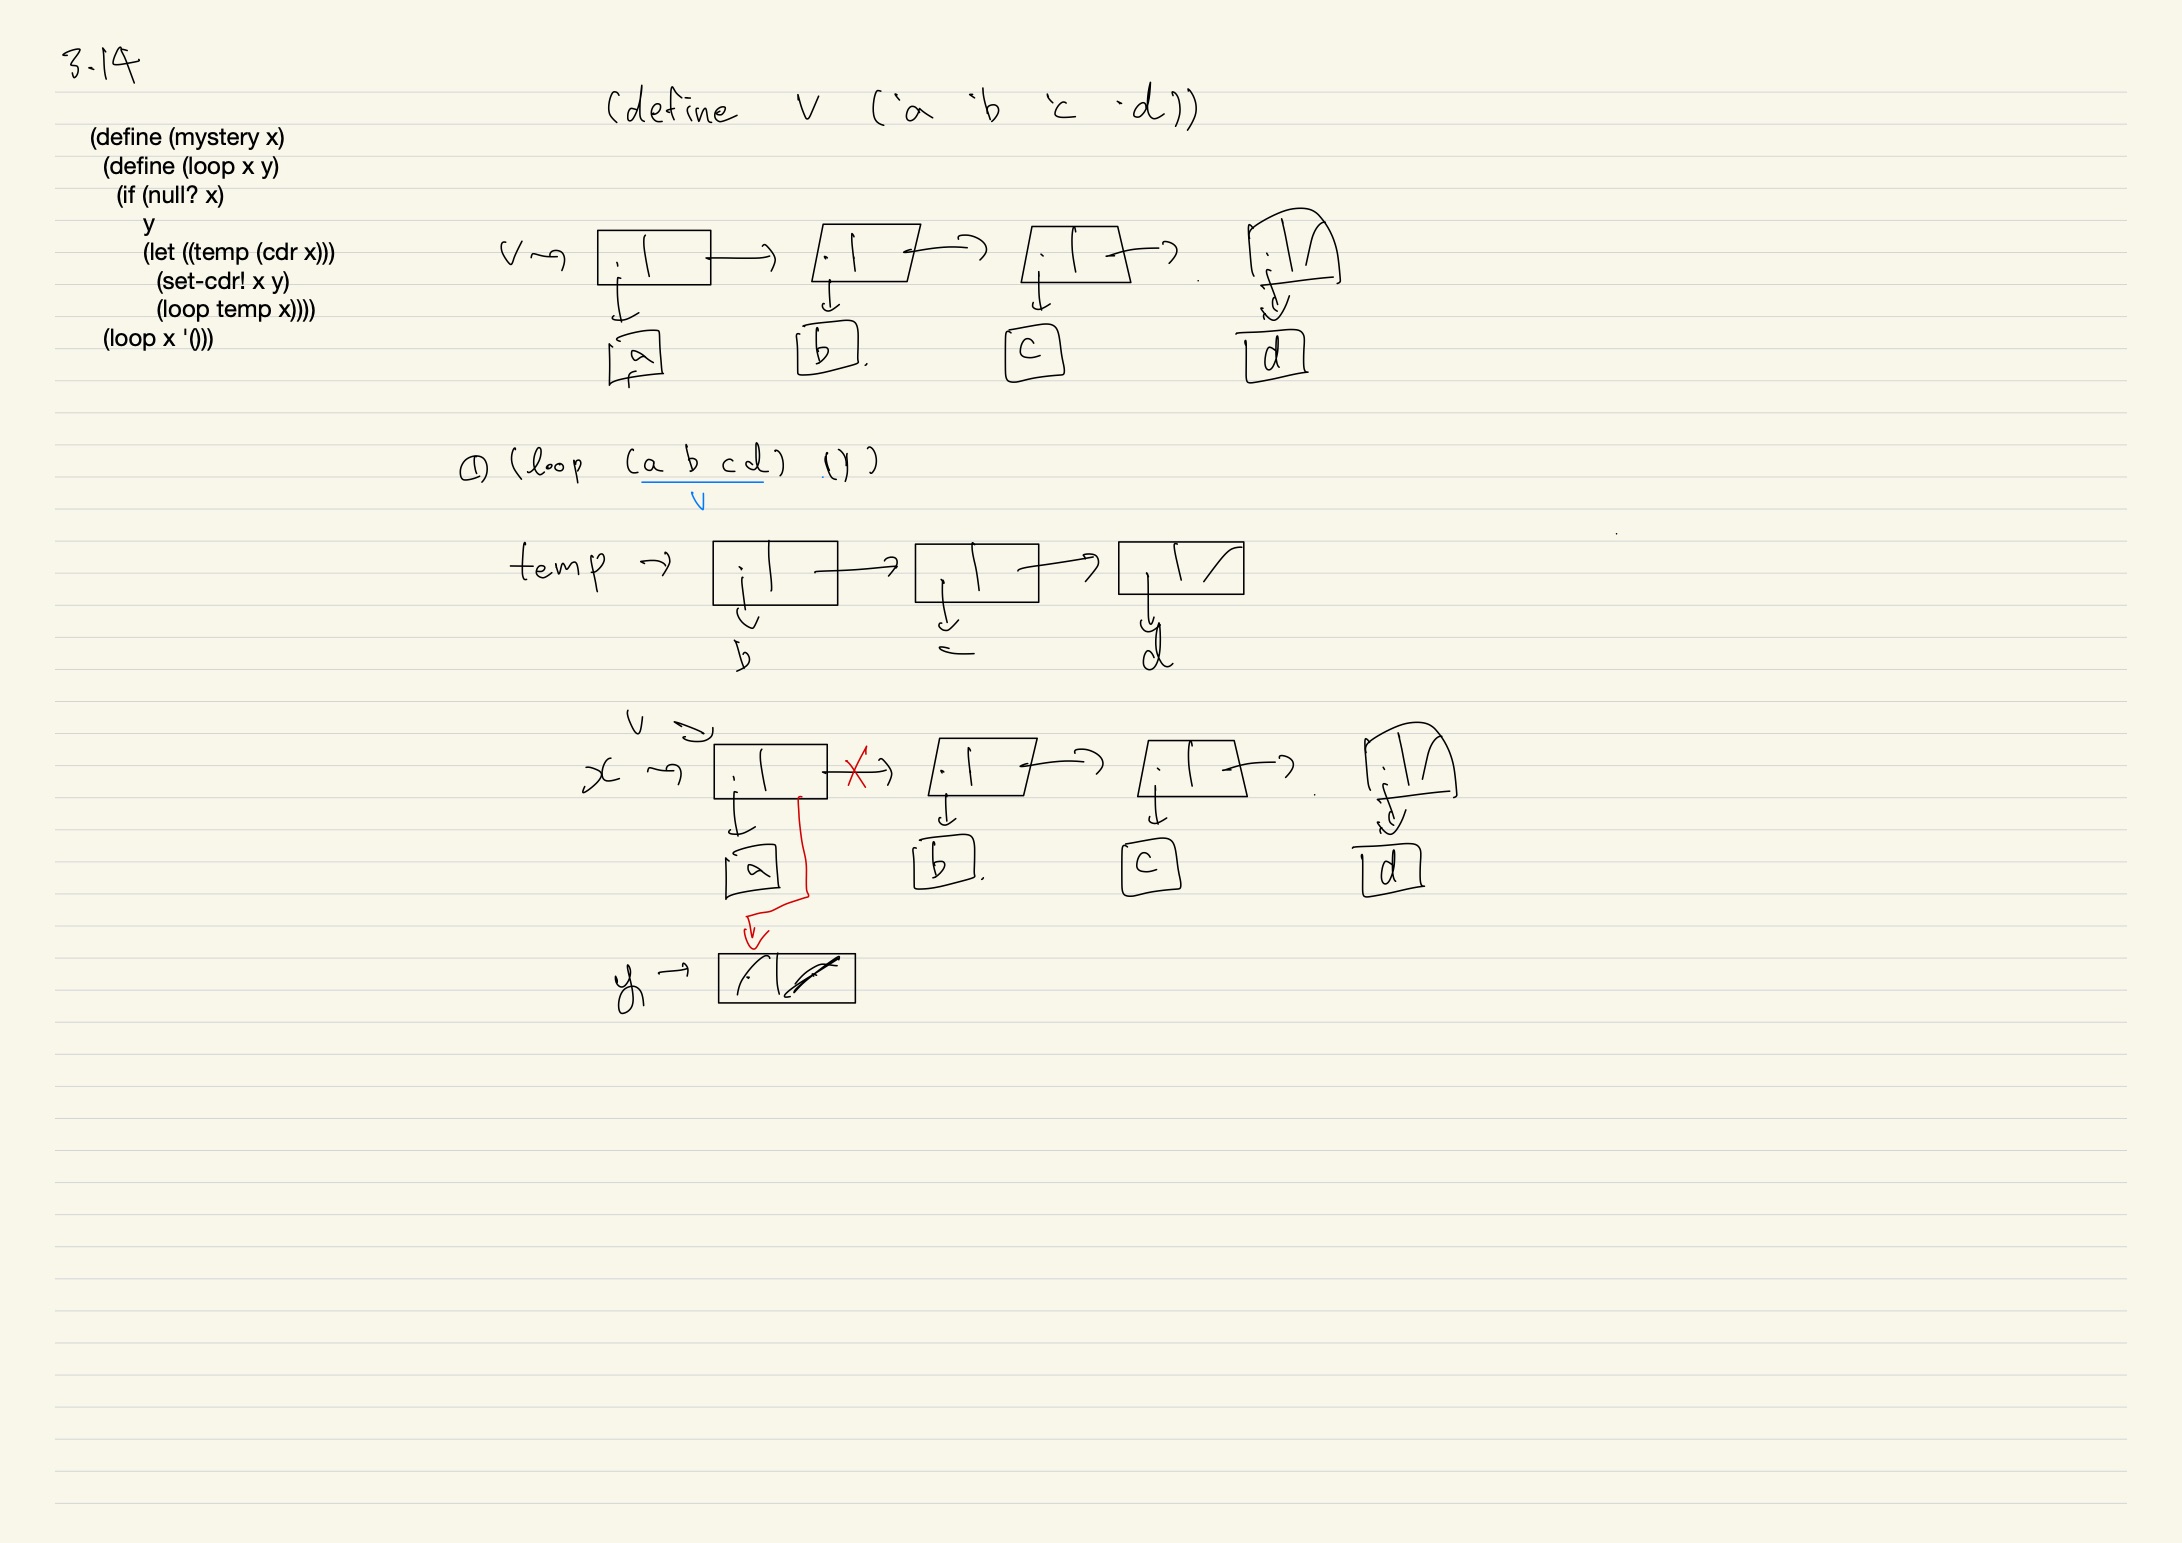 3.14
(define v ('a 'b 'c 'd))
(define (mystery x)
(define (loop x y)
(if (null? x)
y
(let ((temp (cdr x)))
(set-cdr! x y)
(loop temp x))))
(loop x '()))
v
a b c d
① (loop (a b c d) ())
v
temp
b c d
v
x
a b c d
y